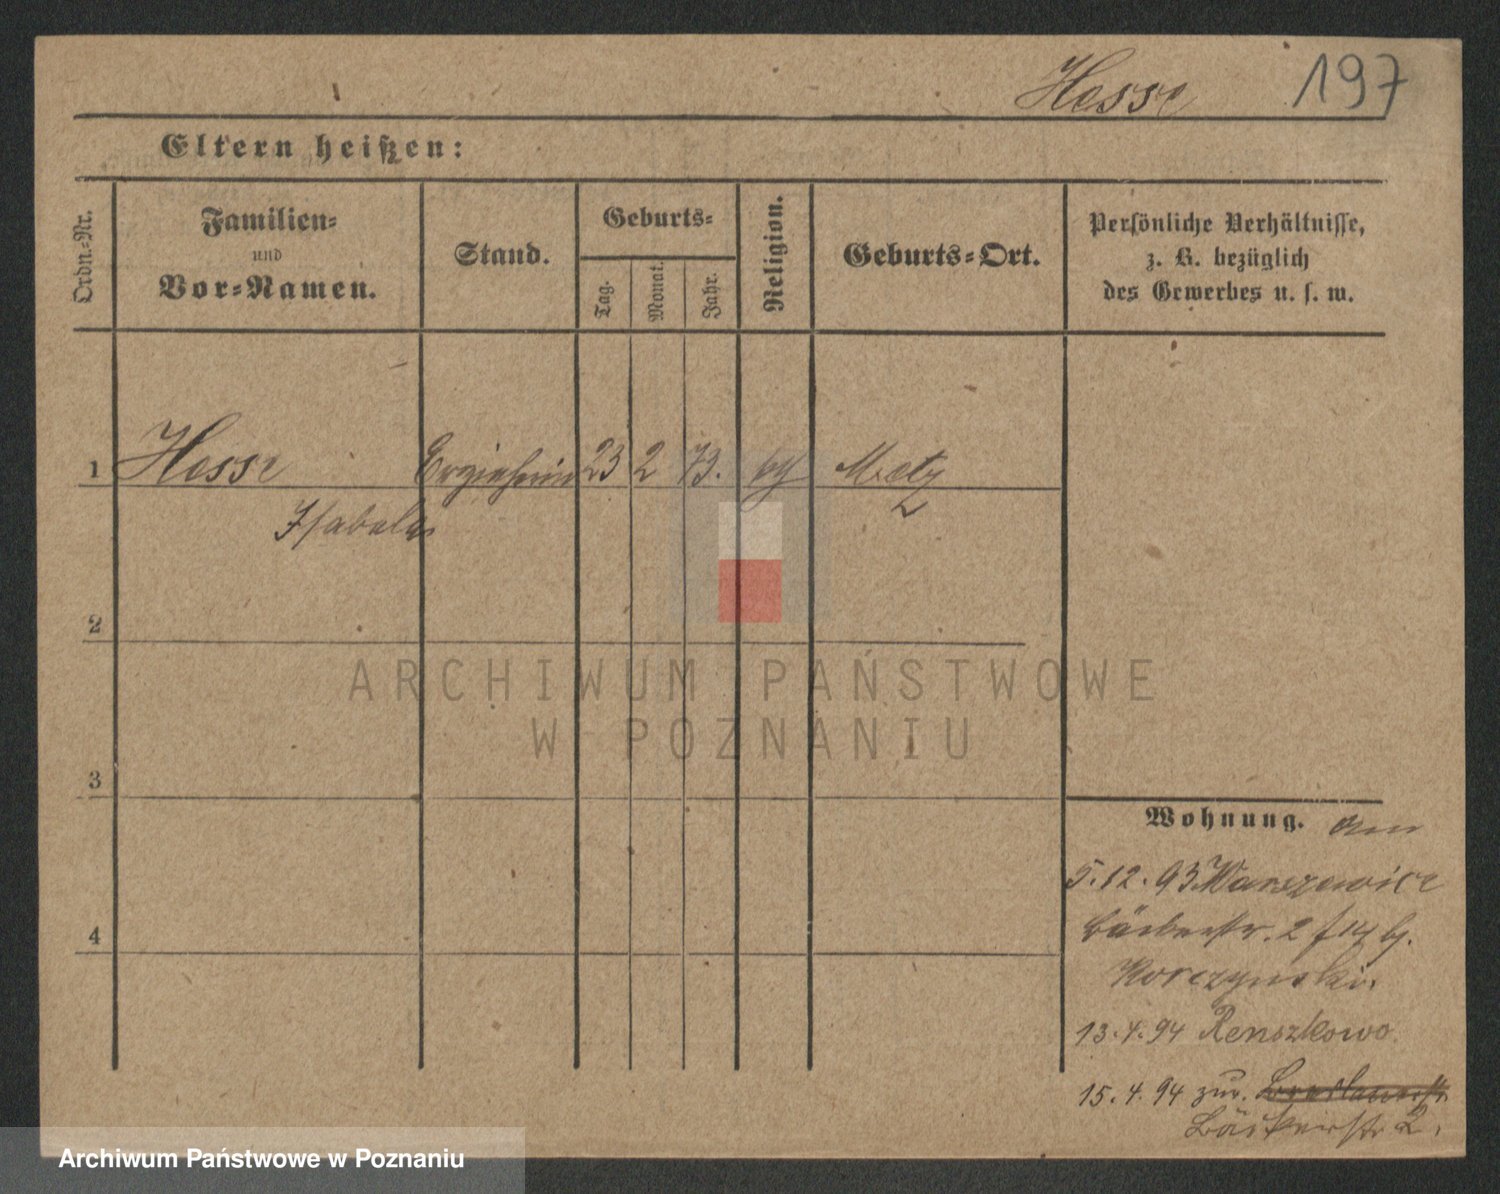 Hesse 197
Eltern heißen:
Ordn.-Nr.
Familien-
und
Vor-Namen.
Stand.
Geburts-
Tag.
Monat.
Jahr.
Religion.
Geburts-Ort.
Persönliche Verhältnisse,
z. B. bezüglich
des Gewerbes u. s. w.
1 Hesse Erzieherin 23 2 73. Metz
Isabela
2
ARCHIWUM PAŃSTWOWE
W POZNANIU
3
Wohnung. am
5.12.93 Warszawice
Bäckerstr. 2
4
Korczynski.
13.4.94 Renszkowo
15.4.94 zur. Breslauerstr
Bäckerstr 2.
Archiwum Państwowe w Poznaniu